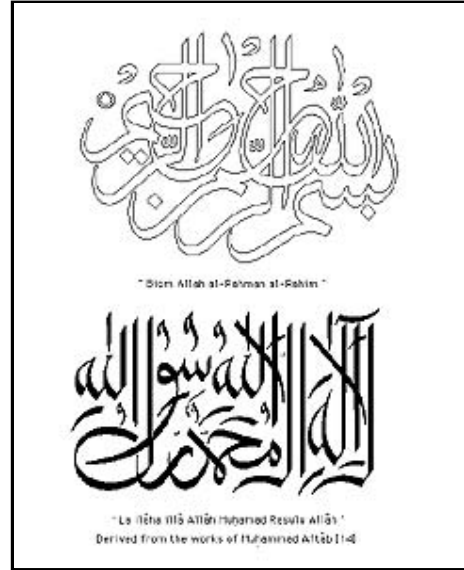 بسم الله الرحمن الرحيم
"Bism Allah al-Rahman al-Rahim"
لا إله إلا الله محمد رسول الله
"La Ilāha Illā Allāh Muḥamad Resulu Allāh"
Derived from the works of Muḥammed Aftāb [14]